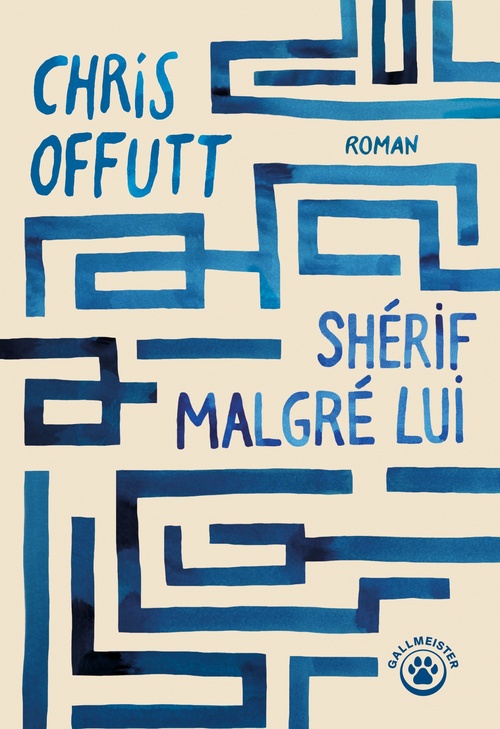 CHRIS
OFFUTT
ROMAN
SHÉRIF
MALGRÉ LUI
GALLMEISTER